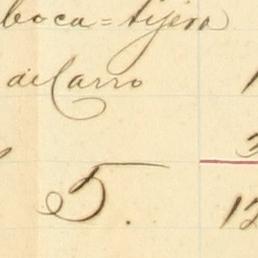 boca=tijera
de Carro 1
3
5. 12